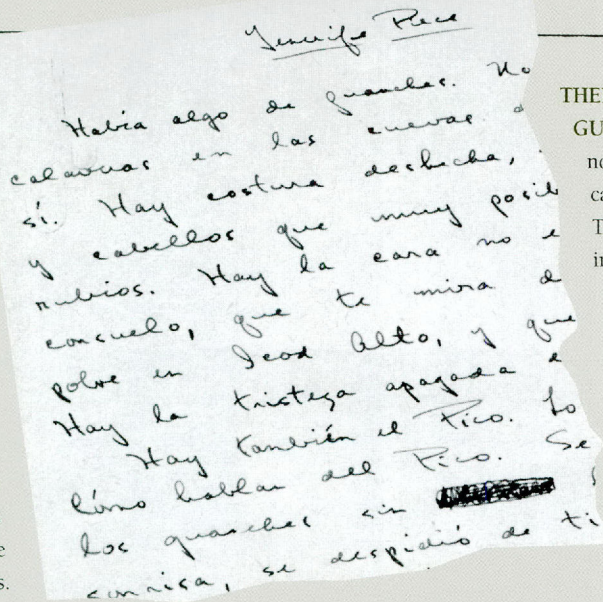 Había algo de guanches. No
calaveras en las cuevas
sí. Hay costura deshecha,
y cabellos que muy posib
rubios. Hay la cara no e
consuelo, que te mira d
polvo en Icod Alto, y que
Hay la tristeza apagada e
Hay también el Pico. Lo
Cómo hablar del Pico. Se
los guanches sin
sonrisa, se despidió de ti
THE
GU
no
ca
T
in
e
s.